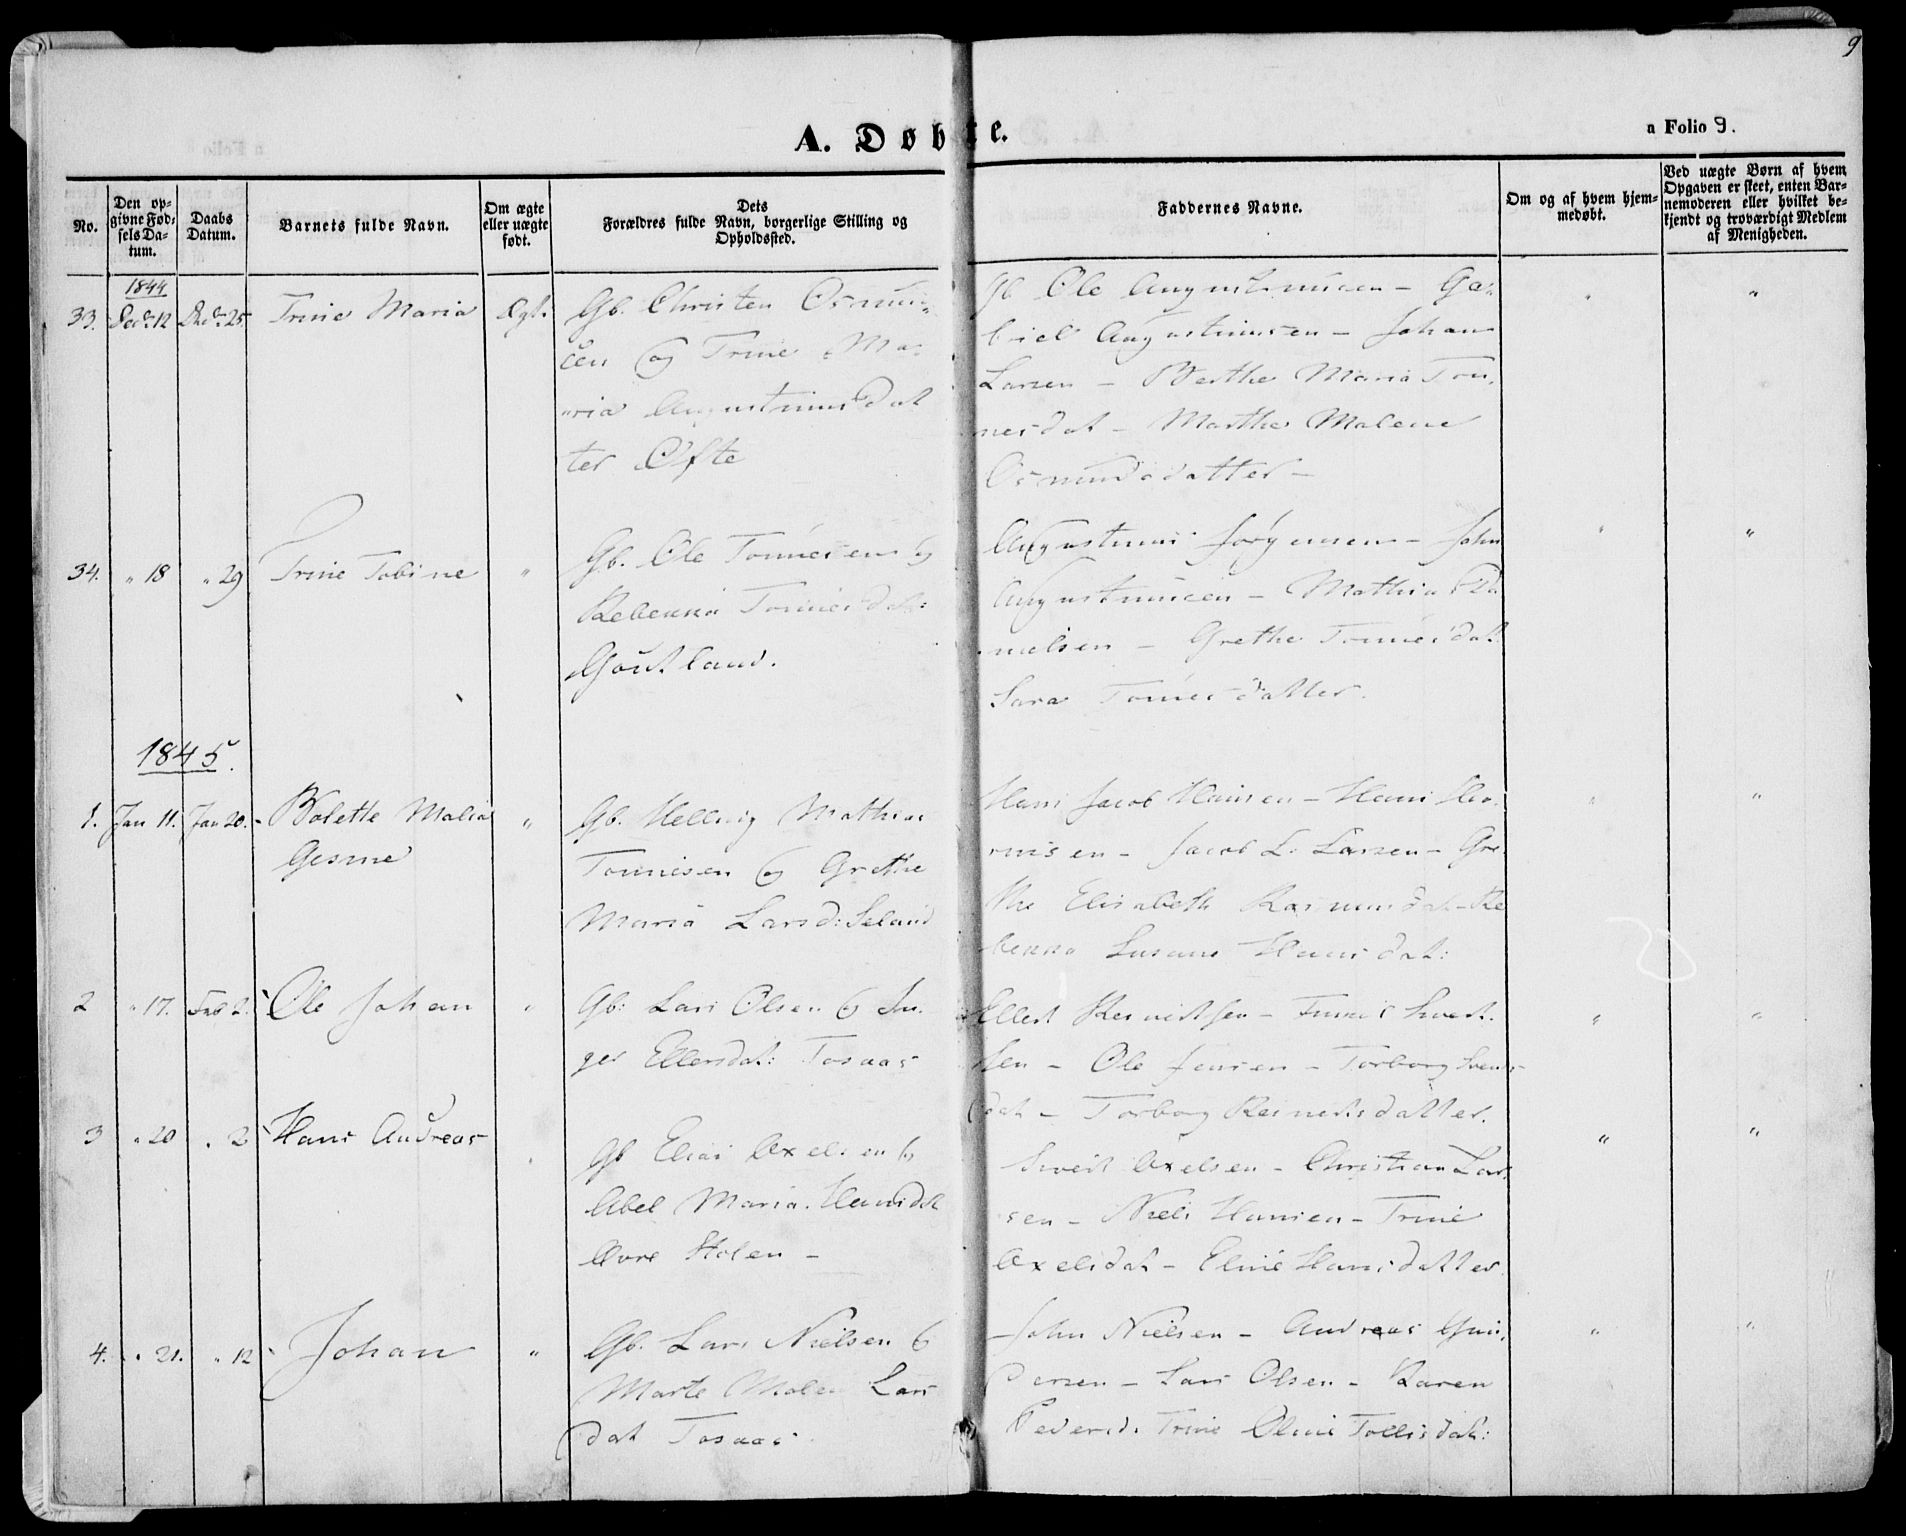 9
A. Døbte.
a Folio 9.
No.
Den op-
givne Fød-
sels Da-
tum.
Daabs
Datum.
Barnets fulde Navn.
Om ægte
eller uægte
født.
Dets
Forældres fulde Navn, borgerlige Stilling og
Opholdssted.
Faddernes Navne.
Om og af hvem hjem-
medøbt.
Ved uægte Børn af hvem
Opgaven er skeet, enten Bar-
nemoderen eller hvilket be-
kjendt og troværdigt Medlem
af Menigheden.
1844
33. Decbr. 12 Decbr. 25 Trine Maria Ægt.
Gb. Christen Osmun-
sen og Trine Ma-
ria Augustinusdat
ter Øfte
Gb Ole Augustinusen - Ga-
briel Augustinusen - Johan
Larsen - Berthe Maria Ton-
nesdat - Marthe Malene
Osmundsdatter -
34. " 18 " 29 Trine Tobine "
Gb. Ole Tonnesen og
Rebekka Tonnesdat:
Gautland.
Augustinus Jørgensen - John
Augustinusen - Mathias Da
nielsen - Grethe Tonnesdat
Sara Tonnesdatter.
1845.
1. Jan 11. Jan 20. Bolette Malia "
Gesine
Gb. Hellvig Mathias
Tonnesen og Grethe
Maria Larsd: Seland
Hans Jacob Hansen - Hans
Jacob L. Larsen - Gre-
the Elisabeth Rasmusdat - Re
bekka Susane Hansdat:
2 " 17. Feb 2. Ole Johan "
Gb: Lars Olsen og In-
ger Ellersdat: Tosaas
Ellert Reinertsen -
sen - Ole Jensen - Torborg Svens-
dat - Torborg Reinertsdatter.
3 " 20 " 2 Hans Andreas "
Gb Elias Axelsen og
Abel Maria Hansdat
Øvre Stolen -
Sivert Axelsen - Christian Lar-
sen - Niels Hansen - Trine
Axelsdat - Eline Hansdatter
4. " 21. " 12 Johan "
Gb. Lars Nielsen og
Marte Malen Lars
dat Tosaas
John Nielsen - Andreas
Lars Olsen - Karen
Pedersd. Trine Oline Tollisdat: